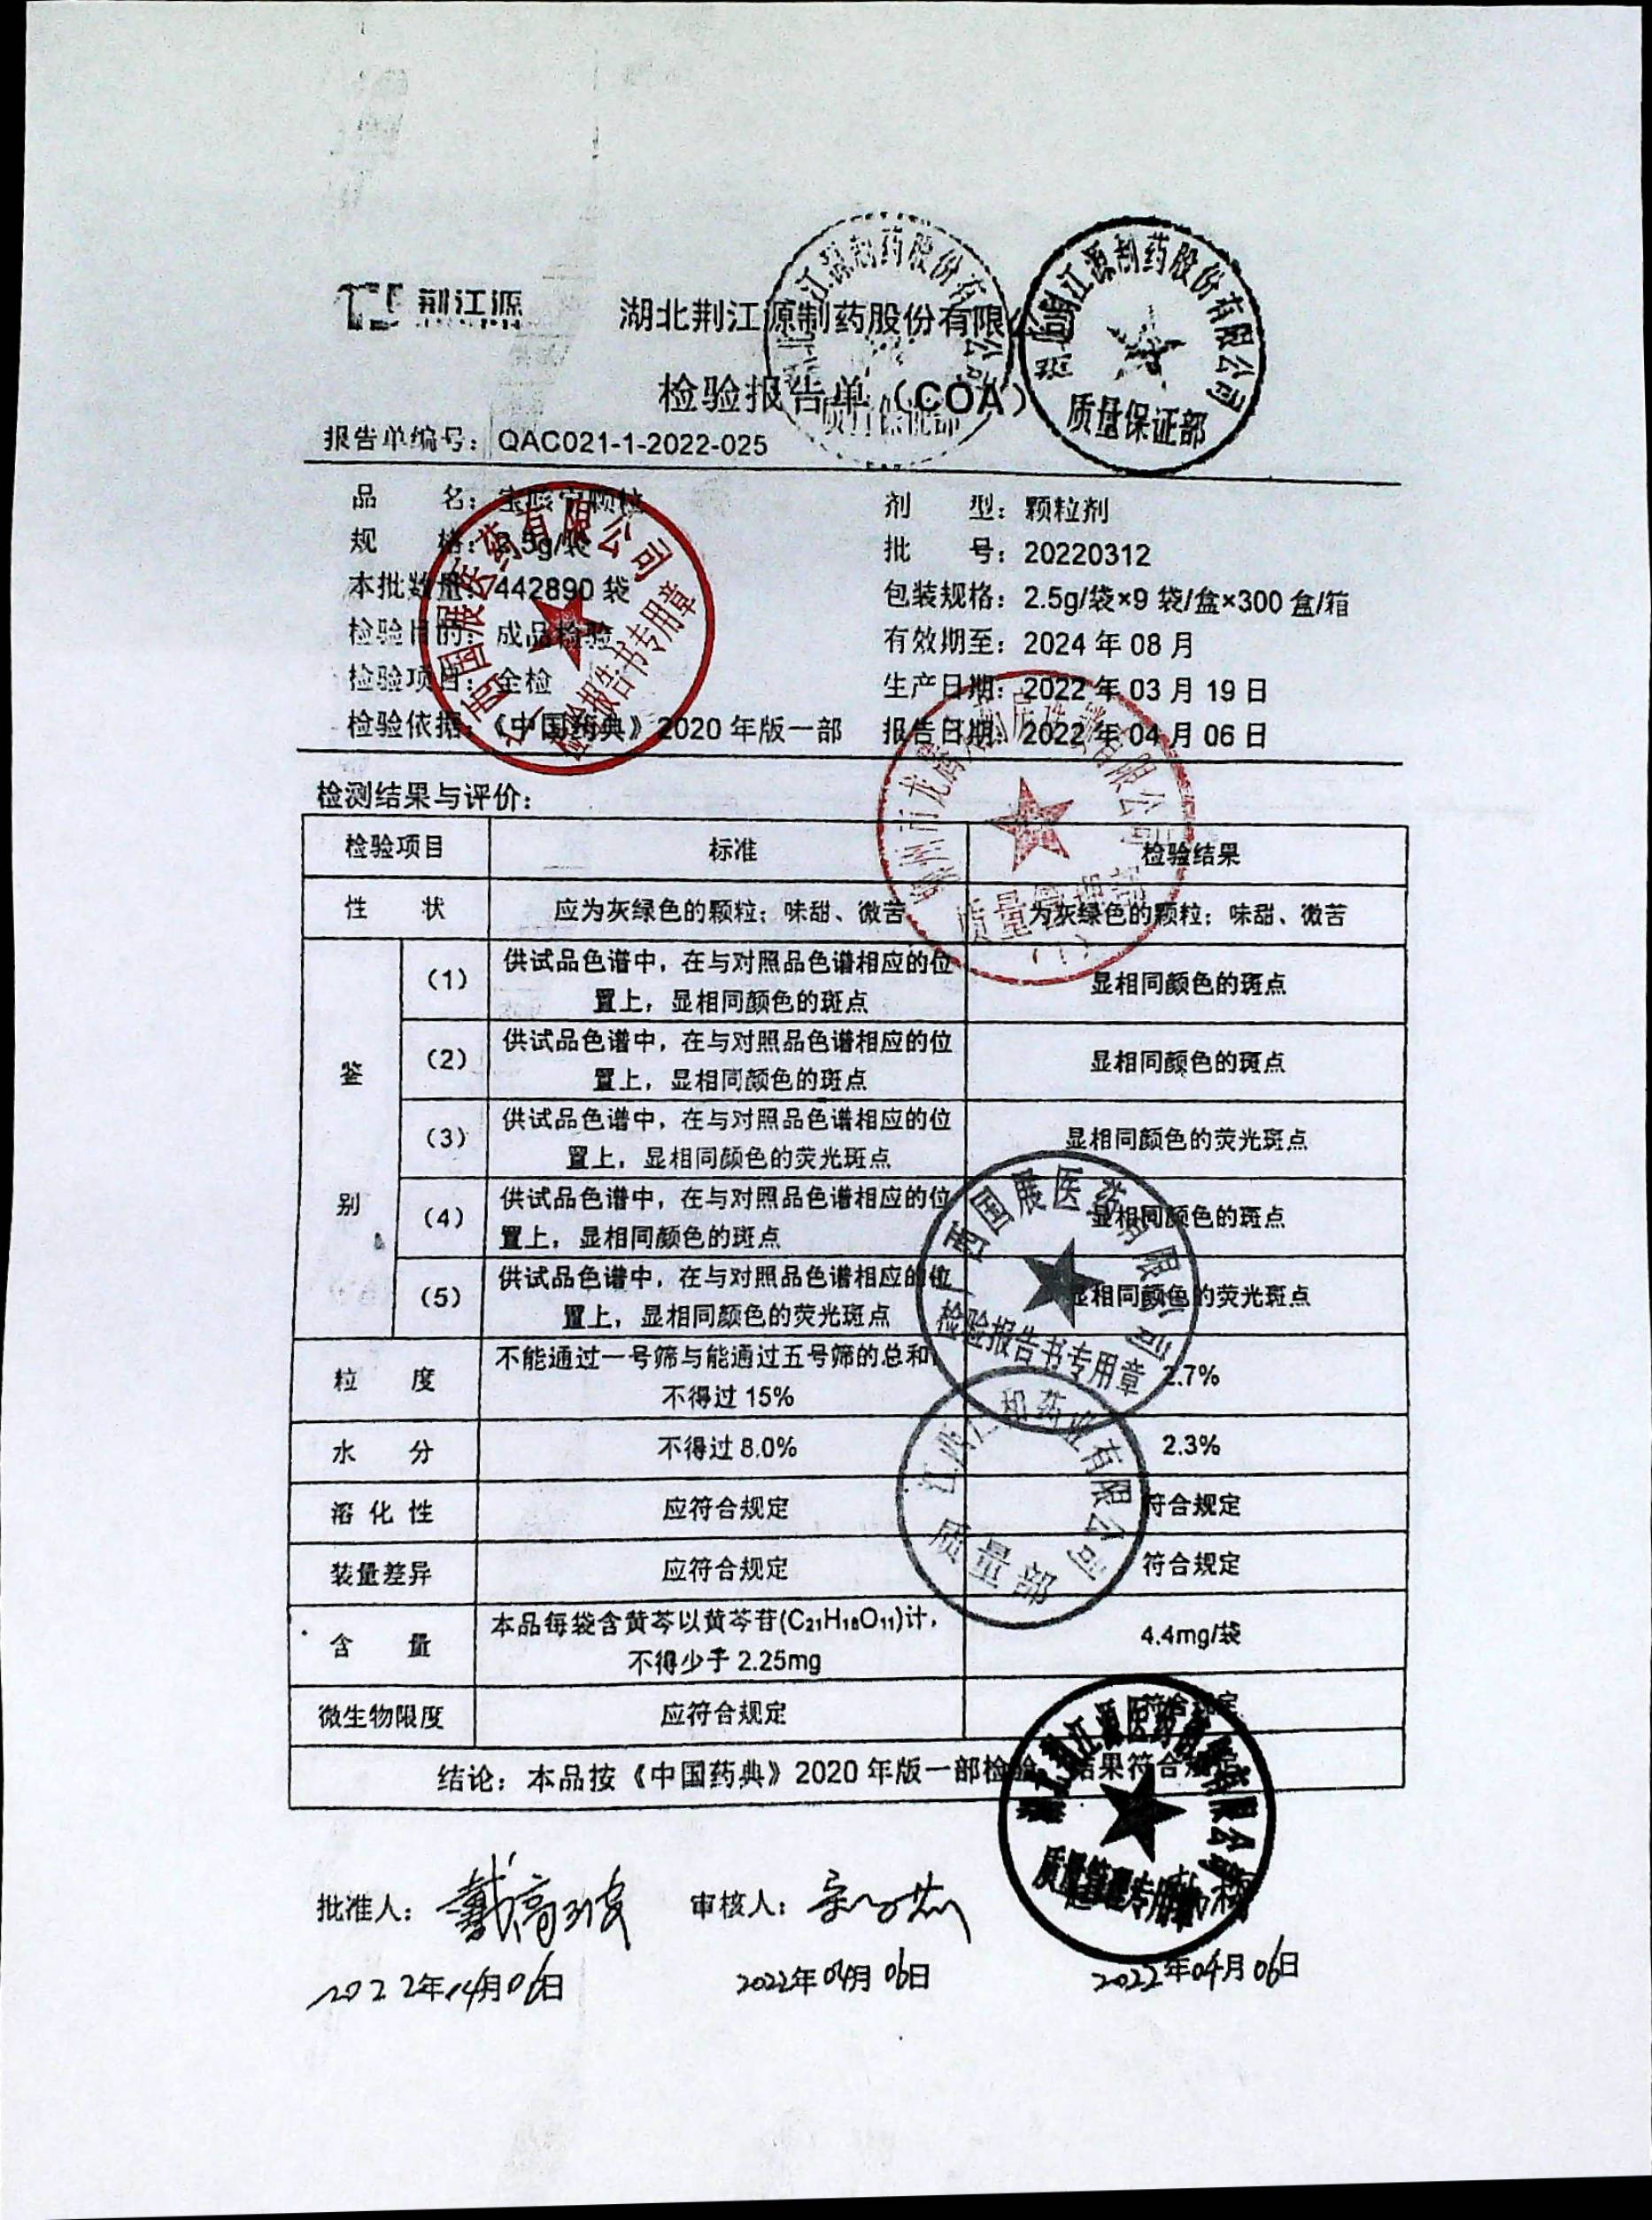 荆江源
湖北荆江源制药股份有限
检验报告单（COA）
报告单编号：QAC021-1-2022-025
品 名：宝咳宁颗粒 剂 型：颗粒剂
规 格：2.5g/袋 批 号：20220312
本批数量：442890 袋 包装规格：2.5g/袋×9 袋/盒×300 盒/箱
检验目的：成品检验 有效期至：2024 年 08 月
检验项目：全检 生产日期：2022 年 03 月 19 日
检验依据：《中国药典》2020 年版一部 报告日期：2022 年 04 月 06 日
检测结果与评价：
检验项目 标准 检验结果
性 状 应为灰绿色的颗粒；味甜、微苦 为灰绿色的颗粒；味甜、微苦
鉴别
（1） 供试品色谱中，在与对照品色谱相应的位
置上，显相同颜色的斑点 显相同颜色的斑点
（2） 供试品色谱中，在与对照品色谱相应的位
置上，显相同颜色的斑点 显相同颜色的斑点
（3） 供试品色谱中，在与对照品色谱相应的位
置上，显相同颜色的荧光斑点 显相同颜色的荧光斑点
（4） 供试品色谱中，在与对照品色谱相应的位
置上，显相同颜色的斑点 显相同颜色的斑点
（5） 供试品色谱中，在与对照品色谱相应的位
置上，显相同颜色的荧光斑点 显相同颜色的荧光斑点
粒 度 不能通过一号筛与能通过五号筛的总和，
不得过 15% 2.7%
水 分 不得过 8.0% 2.3%
溶 化 性 应符合规定 符合规定
装量差异 应符合规定 符合规定
含 量 本品每袋含黄芩以黄芩苷(C₂₁H₁₈O₁₁)计，
不得少于 2.25mg 4.4mg/袋
微生物限度 应符合规定 符合规定
结论：本品按《中国药典》2020 年版一部检验 结果符合规定
批准人： 审核人：
2022年04月06日 2022年04月06日 2022年04月06日
江源制药股份有限公司
质量保证部
江源制药股份有限公司
质量保证部
西国展医药有限公司
检验报告书专用章
有限公司
质量管理部
（1）
广西国展医药有限公司
检验报告书专用章
药业有限公司
质量部
江源医药